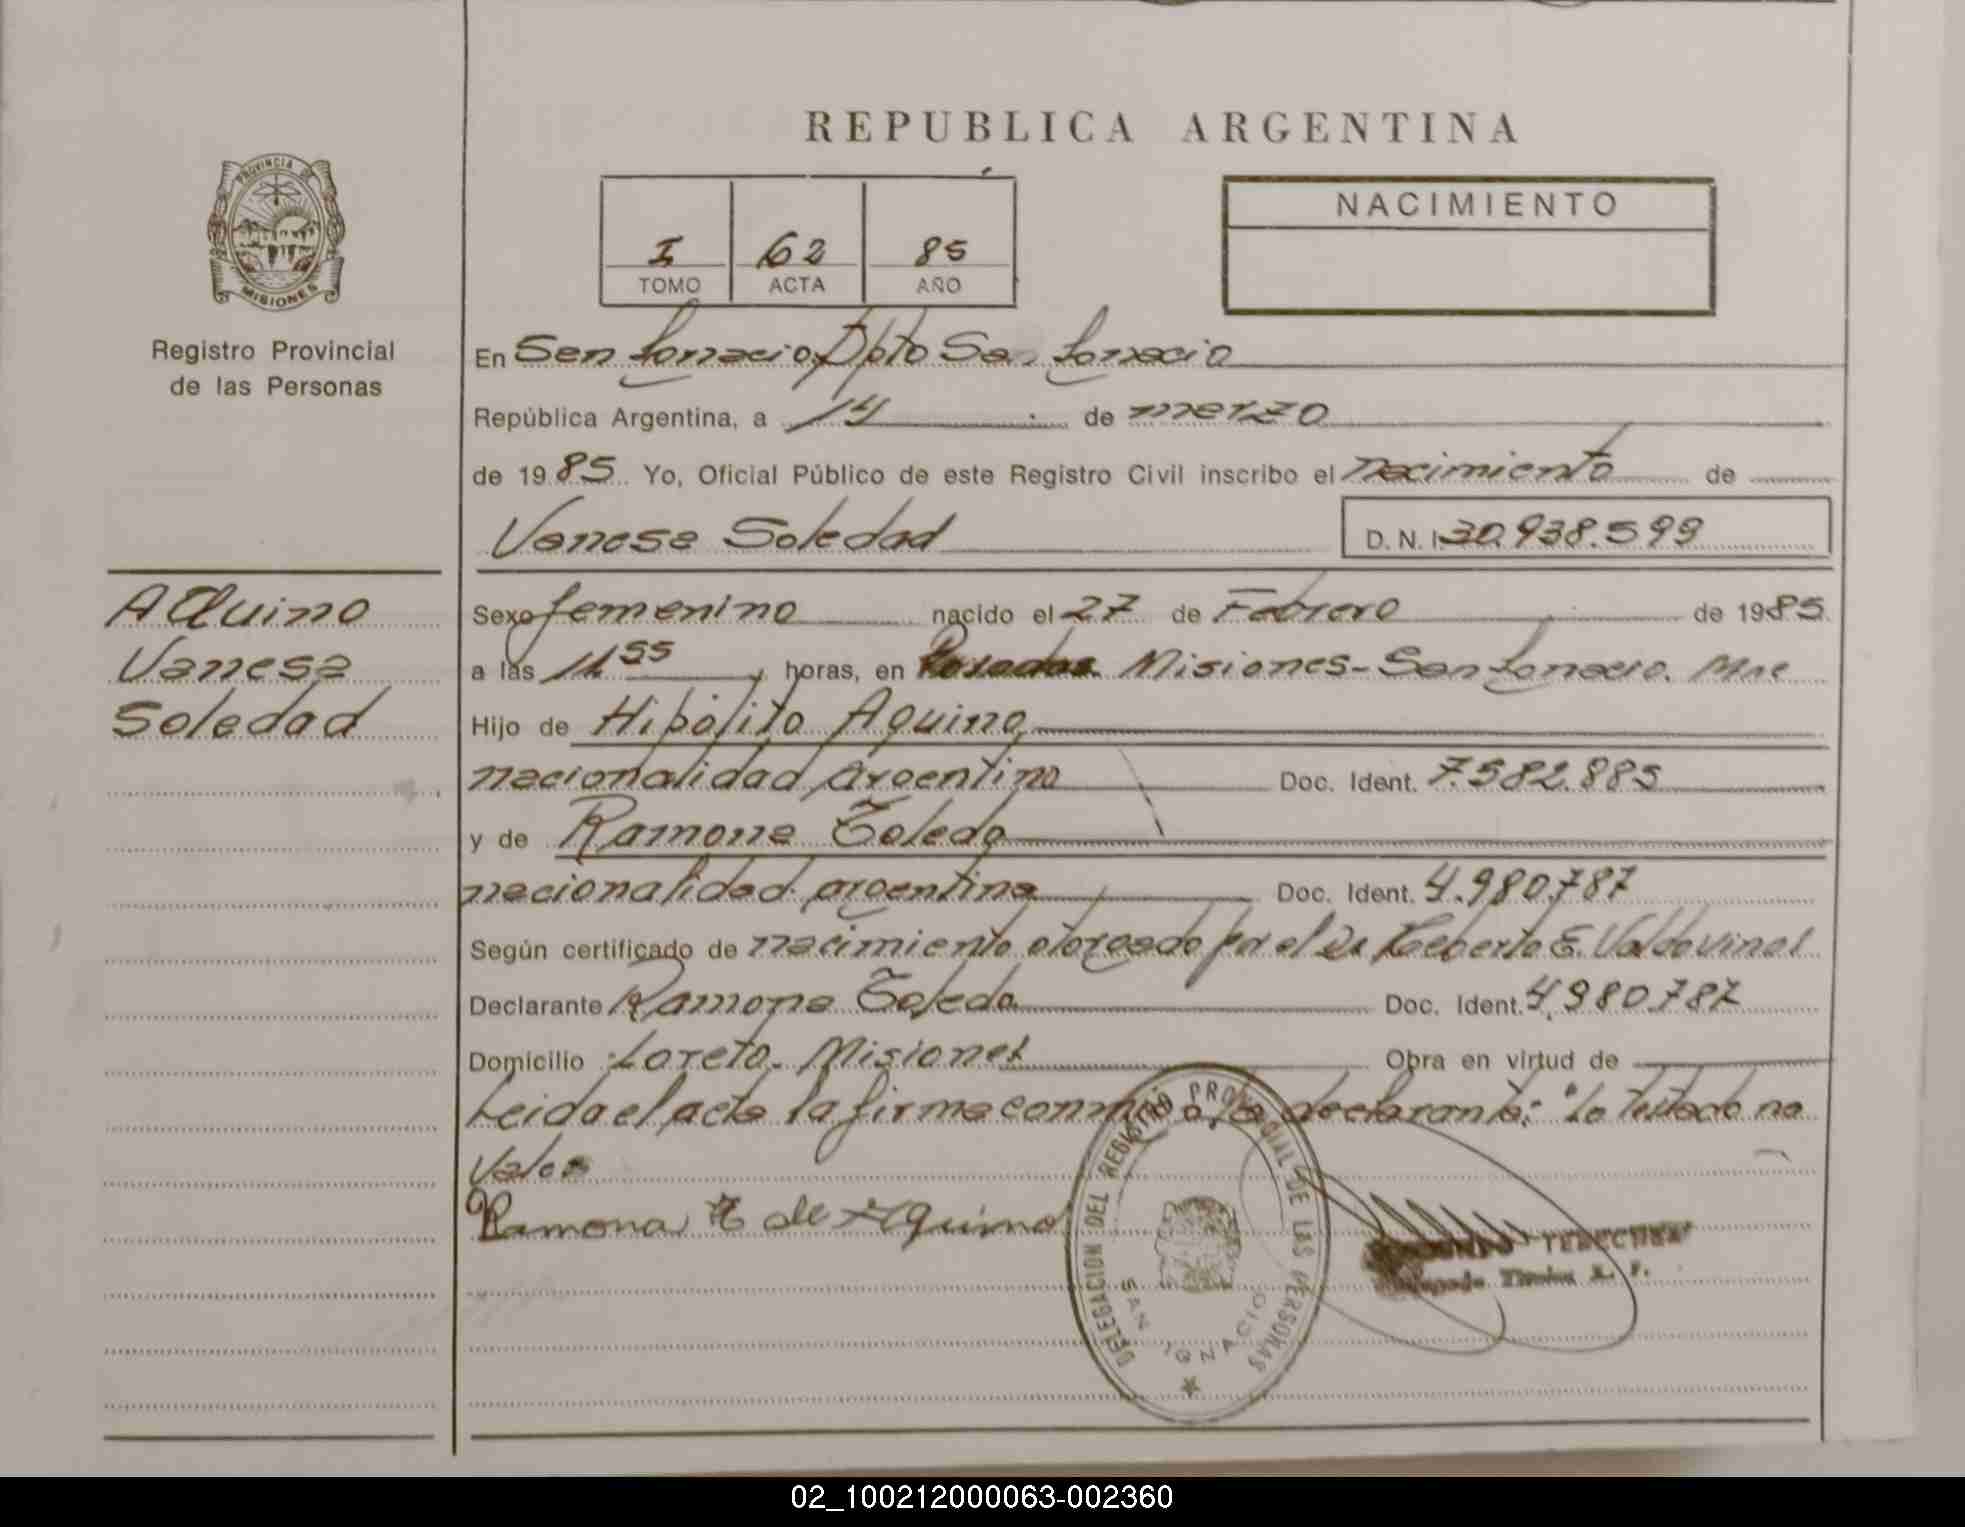 REPUBLICA ARGENTINA
PROVINCIA DE
MISIONES
Registro Provincial
de las Personas
I 62 85
TOMO ACTA AÑO
NACIMIENTO
En San Ignacio, Dpto San Ignacio
República Argentina, a 14 de marzo
de 1985 Yo, Oficial Público de este Registro Civil inscribo el nacimiento de
Vanesa Soledad D. N. I. 30.938.599
Aquino
Vanesa
Soledad
Sexo femenino nacido el 27 de Febrero de 1985
a las 11 55 horas, en Posadas Misiones - San Ignacio. Mnes
Hijo de Hipólito Aquino
nacionalidad Argentina Doc. Ident. 7.582.885
y de Ramona Toledo
nacionalidad argentina Doc. Ident. 4.980.787
Según certificado de nacimiento otorgado por el Dr E. Valdovinos
Declarante Ramona Toledo Doc. Ident. 4.980.787
Domicilio Loreto - Misiones Obra en virtud de
Leida el acta la firma conmigo la declarante: "Lo testado no
vale
Ramona T de Aquino
DELEGACION DEL REGISTRO PROVINCIAL DE LAS PERSONAS
SAN IGNACIO
Titular R. P.
02_100212000063-002360